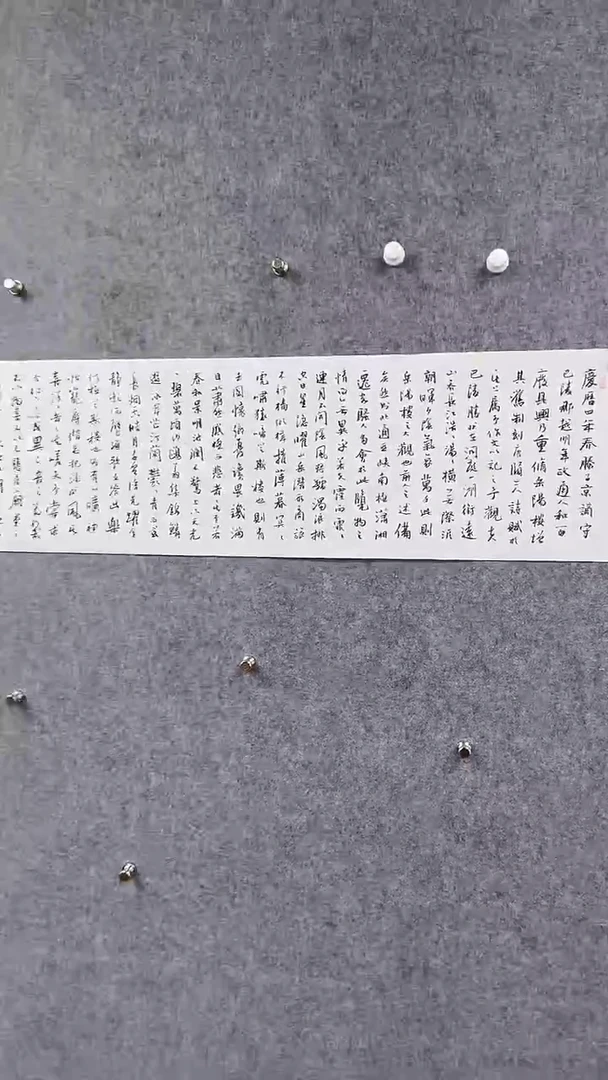 慶曆四年春滕子京謫守
巴陵郡越明年政通人和百
廢具興乃重脩岳陽樓增
其舊制刻唐賢今人詩賦於
其上屬予作文以記之予觀夫
巴陵勝狀在洞庭一湖銜遠
山吞長江浩浩湯湯橫無際涯
朝暉夕陰氣象萬千此則
岳陽樓之大觀也前人之述備
矣然則北通巫峽南極瀟湘
遷客騷人多會於此覽物之
情得無異乎若夫霪雨霏霏
連月不開陰風怒號濁浪排
空日星隱曜山岳潛形商旅
不行檣傾楫摧薄暮冥冥
虎嘯猿啼登斯樓也則有
去國懷鄉憂讒畏譏滿
目蕭然感極而悲者也至若
春和景明波瀾不驚上下天光
一碧萬頃沙鷗翔集錦鱗
游泳岸芷汀蘭郁郁青青而或
長烟一空皓月千里浮光耀金
靜影沉璧漁歌互答此樂
何極登斯樓也則有心曠神
怡寵辱偕忘把酒臨風其
喜洋洋者矣嗟夫予嘗求
古仁人之心或異二者之為何哉
不以物喜不以己悲居廟堂之